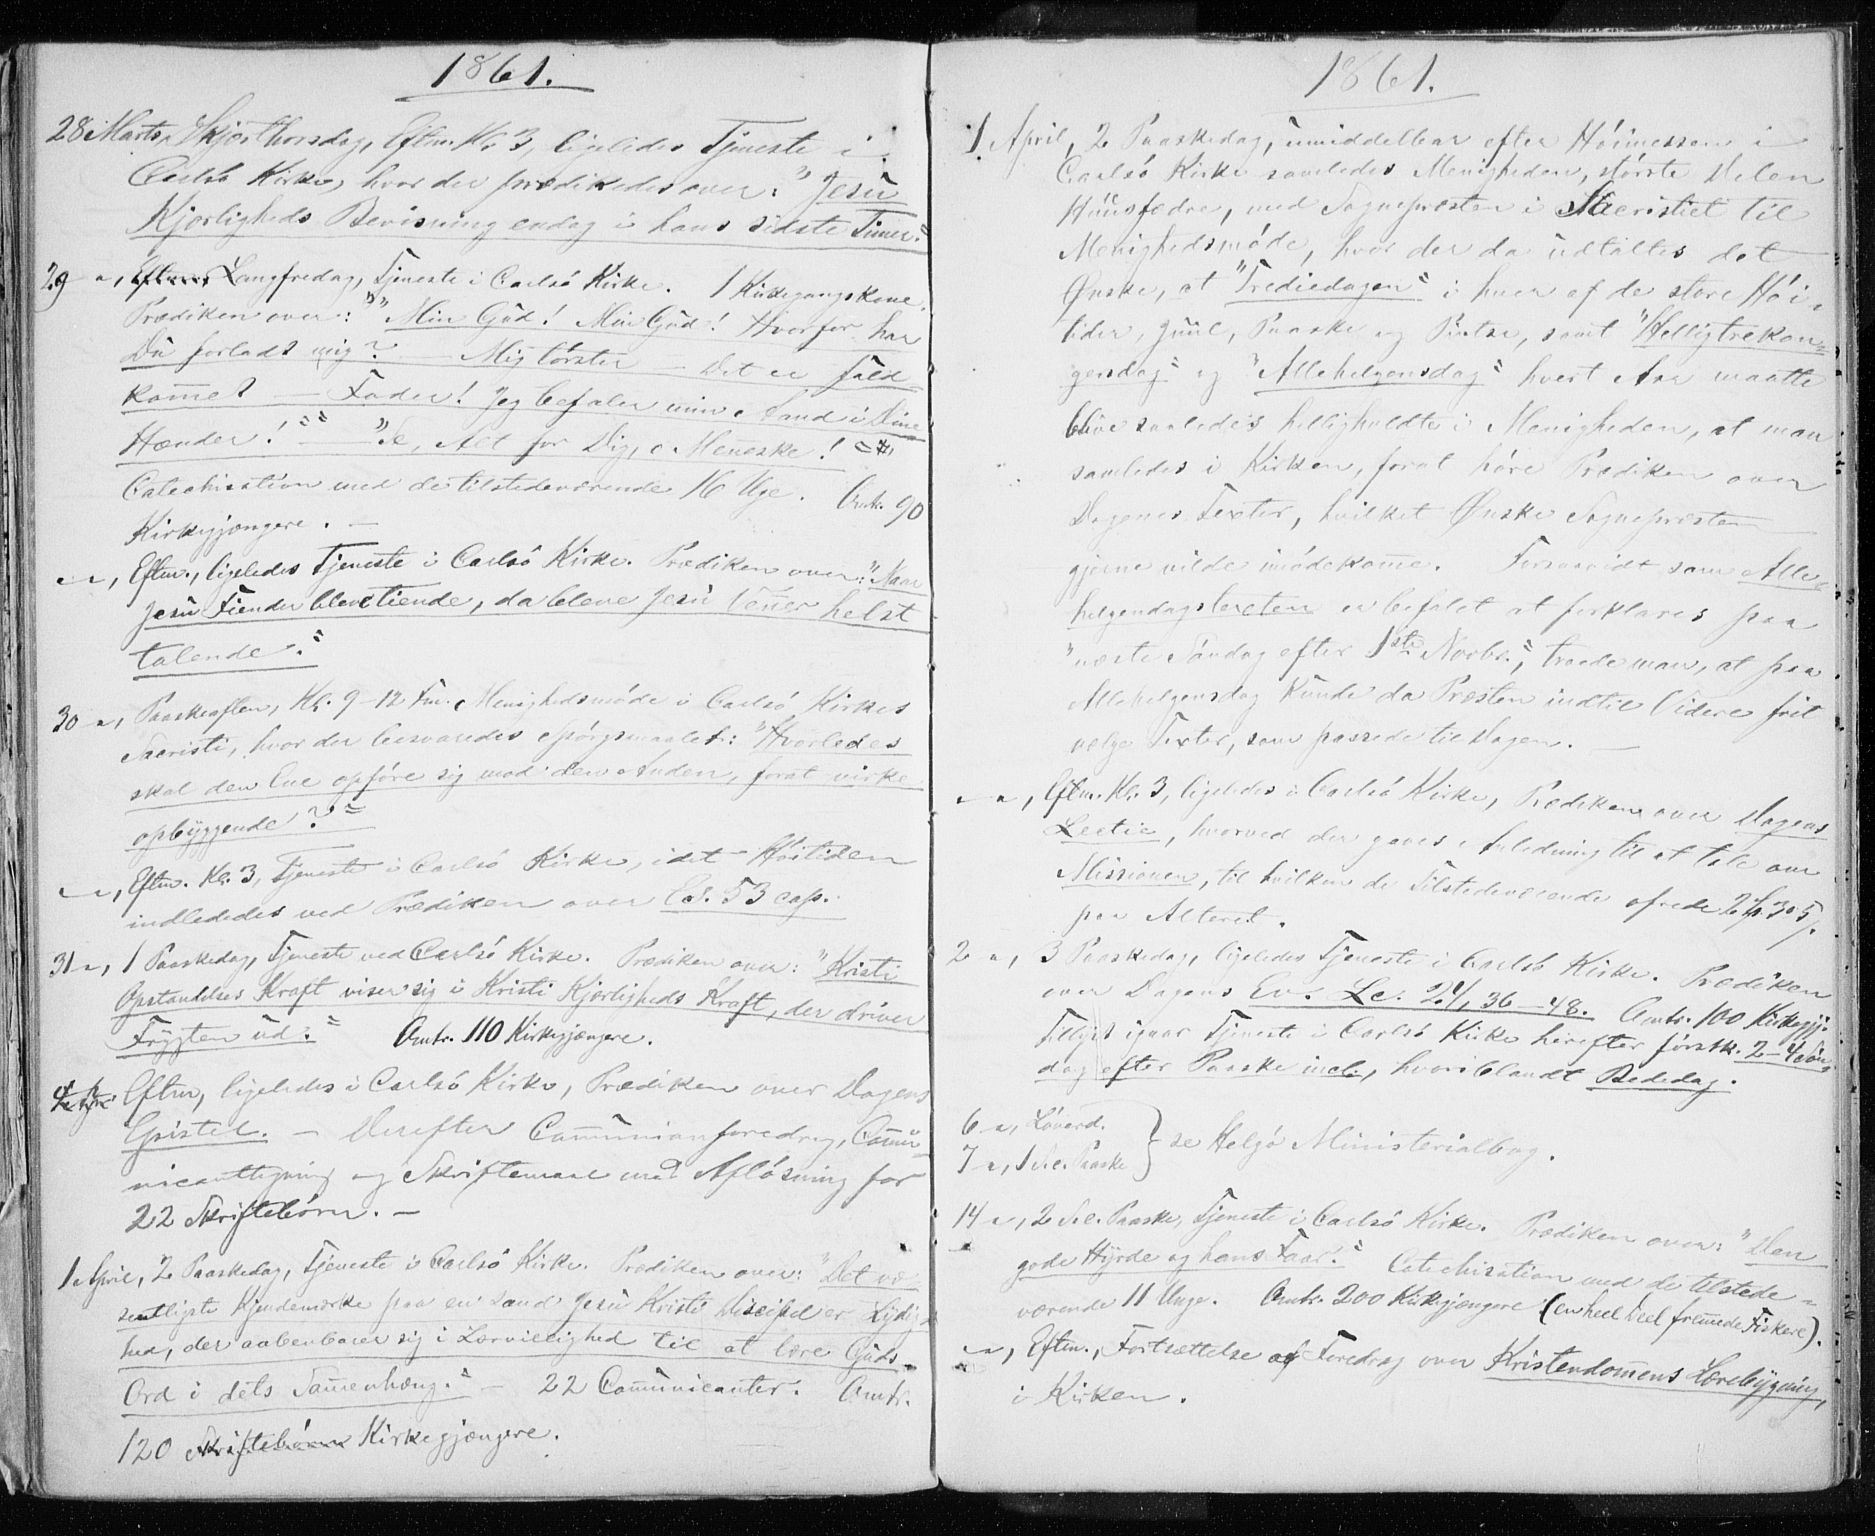 1861.
28 Marts, Skjærthorsdag, Eftm. Kl. 3, ligeledes Tjeneste i
Carlsö Kirke, hvor der prædikedes over: "Jesu
Kjærligheds Bevisning endog i hans sidste Timer."
29 –, Langfredag, Tjeneste i Carlsö Kirke. 1 Kirkegangskone.
Prædiken over: ""Min Gud! Min Gud! Hvorfor har
Du forladt mig? – Mig törster – Det er fuld-
kom̄et – Fader! Jeg befaler min Aand i Dine
Hænder!"" – "Se, Alt for Dig, o Men̄eske!"
Catechisation med de tilstedeværende 16 Uge. Omtr. 90
Kirkegjængere. –
– –, Eftm., ligeledes Tjeneste i Carlsö Kirke. Prædiken over: "Naar
Jesu Fiender bleve tiende, da bleve Jesu Ven̄er helst
talende."
30 –, Paaskeaften, Kl. 9–12 Fm. Menighedsmöde i Carlsö Kirkes
Sacristi, hvor der besvaredes Spörgsmaalet: "Hvorledes
skal den Ene opföre sig mod den Anden, forat virke
opbyggende?"
– –, Eftm. Kl. 3, Tjeneste i Carlsö Kirke, idet Höitiden
indlededes ved Prædiken over Es. 53 cap.
31 –, 1 Paaskedag, Tjeneste ved Carlsö Kirke. Prædiken over: "Kristi
Opstandelses Kraft viser sig i Kristi Kjærligheds Kraft, der driver
Frygten ud." Omtr. 110 Kirkegjængere.
Eftm, ligeledes i Carlsö Kirke, Prædiken over Dagens
Epistel. – Derefter Com̄unionforedrag, Com̄u-
nicanttegning og Skriftemaal med Aflösning for
22 Skriftebörn. –
1 April, 2 Paaskedag, Tjeneste i Carlsö Kirke. Prædiken over: "Det væ-
sentligste Kjendemærke paa en sand Jesu Kristi Discipel er Lydig-
hed, der aabenbarer sig i Lærvillighed til at lære Guds
Ord i dets Sam̄enhæng." – 22 Com̄unicanter. Omtr.
120 Skriftebörn Kirkegjængere.
1861.
1 April, 2 Paaskedag, umiddelbar efter Höimessen i
Carlsö Kirke samledes Menigheden, största Delen
Huusfædre, med Sognepræsten i Sacristiet til
Menighedsmöde, hvor der da udtaltes det
Önske, at "Trediedagen" i hver af de store Höi-
tider, Juul, Paaske og Pintse, samt "Helligtrekon-
gersdag" og "Allehelgensdag" hvert Aar maatte
blive saaledes helligholdte i Menigheden, at man
samledes i Kirken, forat höre Prædiken over
Dagenes Texter, hvilket Önske Sognepræsten
gjerne vilde imödekom̄e. Forsaavidt som Alle-
helgendagstexten er befalet at forklares paa
"næste Söndag efter 1ste Novbr.", troede man, at paa
Allehelgensdag kunde da Præsten indtil Videre frit
vælge Texter, som passede til Dagen. –
– –, Eftm. Kl. 3, ligeledes i Carlsö Kirke, Prædiken over Dagens
Lectie, hvorved der gaves Anledning til at tale over
Missionen, til hvilken de Tilstedeværende ofrede
paa Alteret.
2 –, 3 Paaskedag, ligeledes Tjeneste i Carlsö Kirke. Prædiken
over Dagens Ev. Lc. 24, 36–48. Omtr. 100 Kirkegjg.
Tillyst igaar Tjeneste i Carlsö Kirke herefter förstk. 2–4 Sön-
dag efter Paaske incl., hvoriblandt Bededag.
6 –, Löverd.
7 –, 1 S. e. Paaske } se Helgö Ministerialbog.
14 –, 2 S. e. Paaske, Tjeneste i Carlsö Kirke. Prædiken over: "Den
gode Hyrde og hans Faar." Catechisation med de tilstede-
værende 11 Unge. Omtr. 200 Kirkegjængere (en heel Deel frem̄ede Fiskere).
– –, Eftm., Fortsættelse af Foredrag over Kristendom̄ens Lærebygning,
i Kirken.